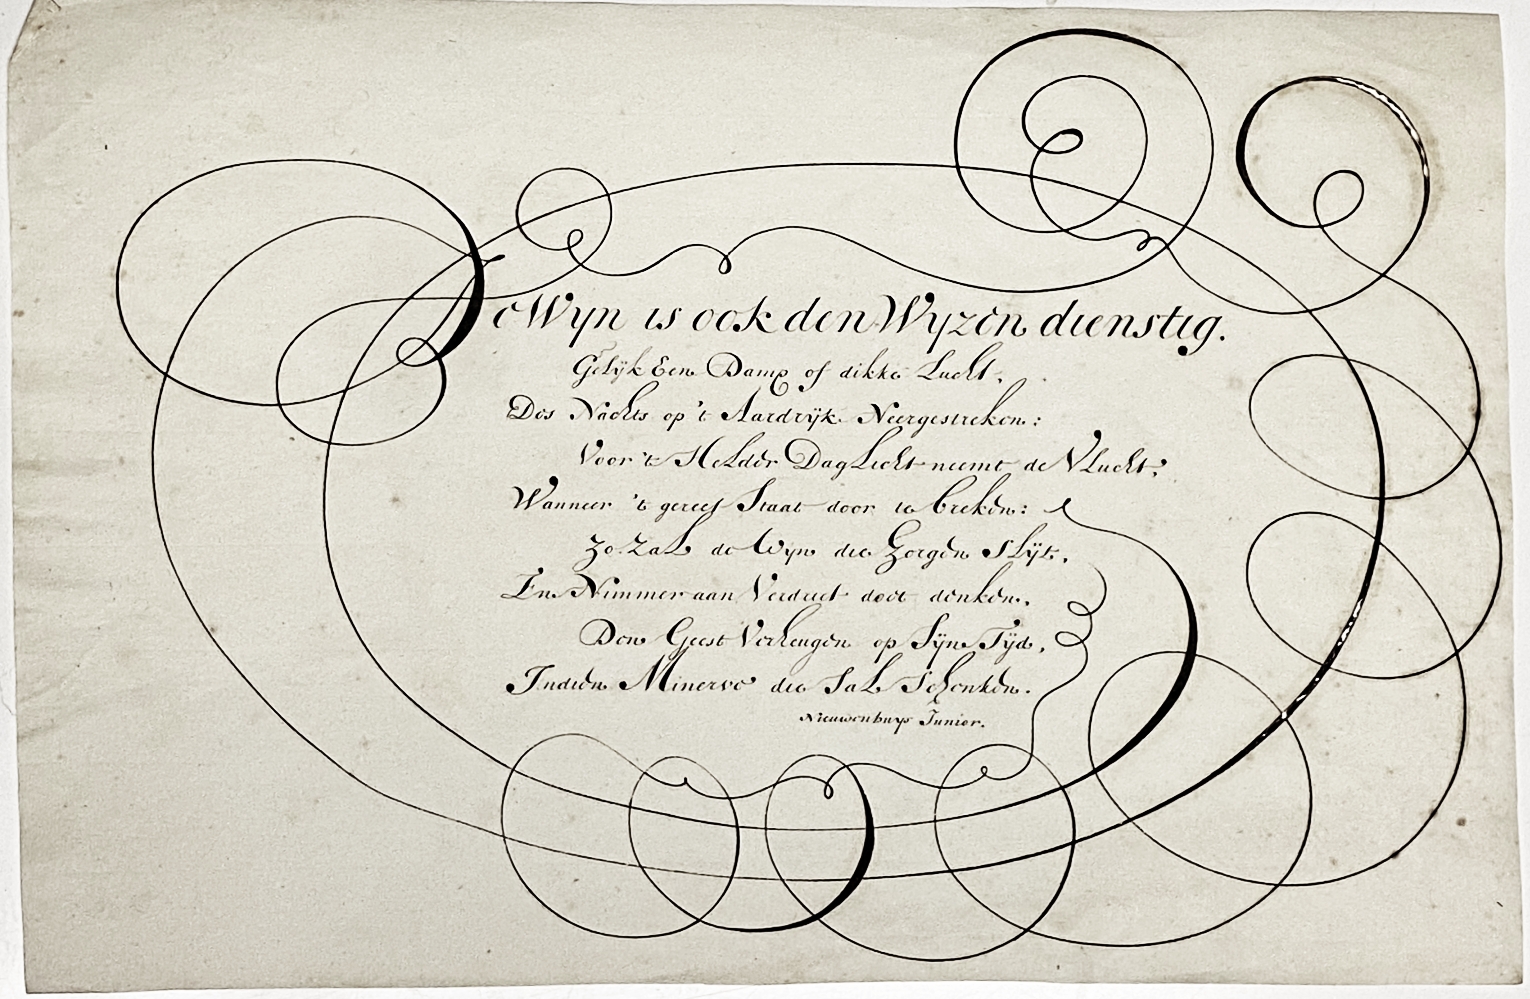 De Wyn is ook den Wyzen dienstig.
Gelÿk Een Damp of dikke Lucht,
Des Nachts op 't Aardrÿk Neergestreken:
Voor 't Helder DagLicht neemt de VLucht;
Wanneer 't gereet Staat door te breken:
Zo ZaL de Wÿn die Zorgen SLÿt,
En Nimmer aan Verdriet doet denken,
Den Geest Verheugen op Sÿn Tÿd,
Indien Minerve die SaL Schenken.
Nieuwenhuys Junior.